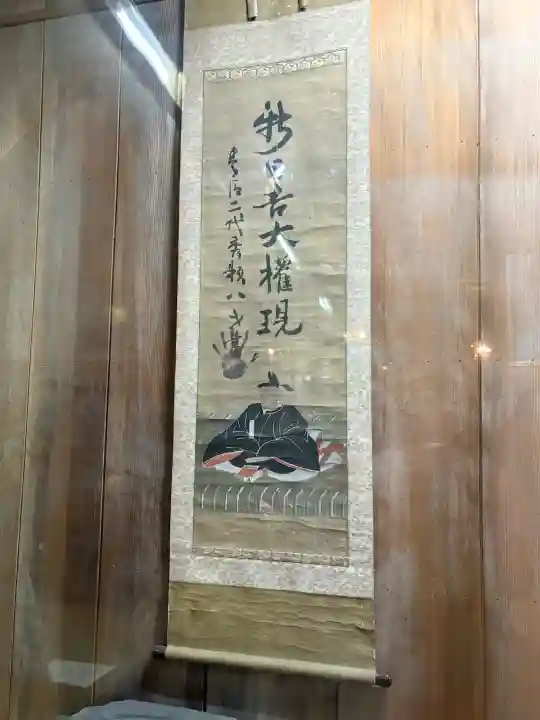 新日吉大權現
豊臣二代秀頼八才